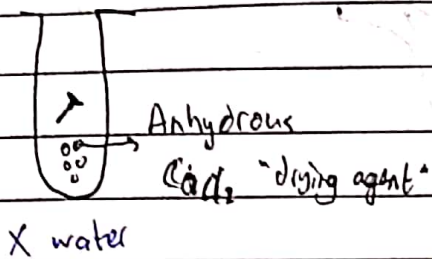 Anhydrous
CaCl₂ "drying agent"
X water